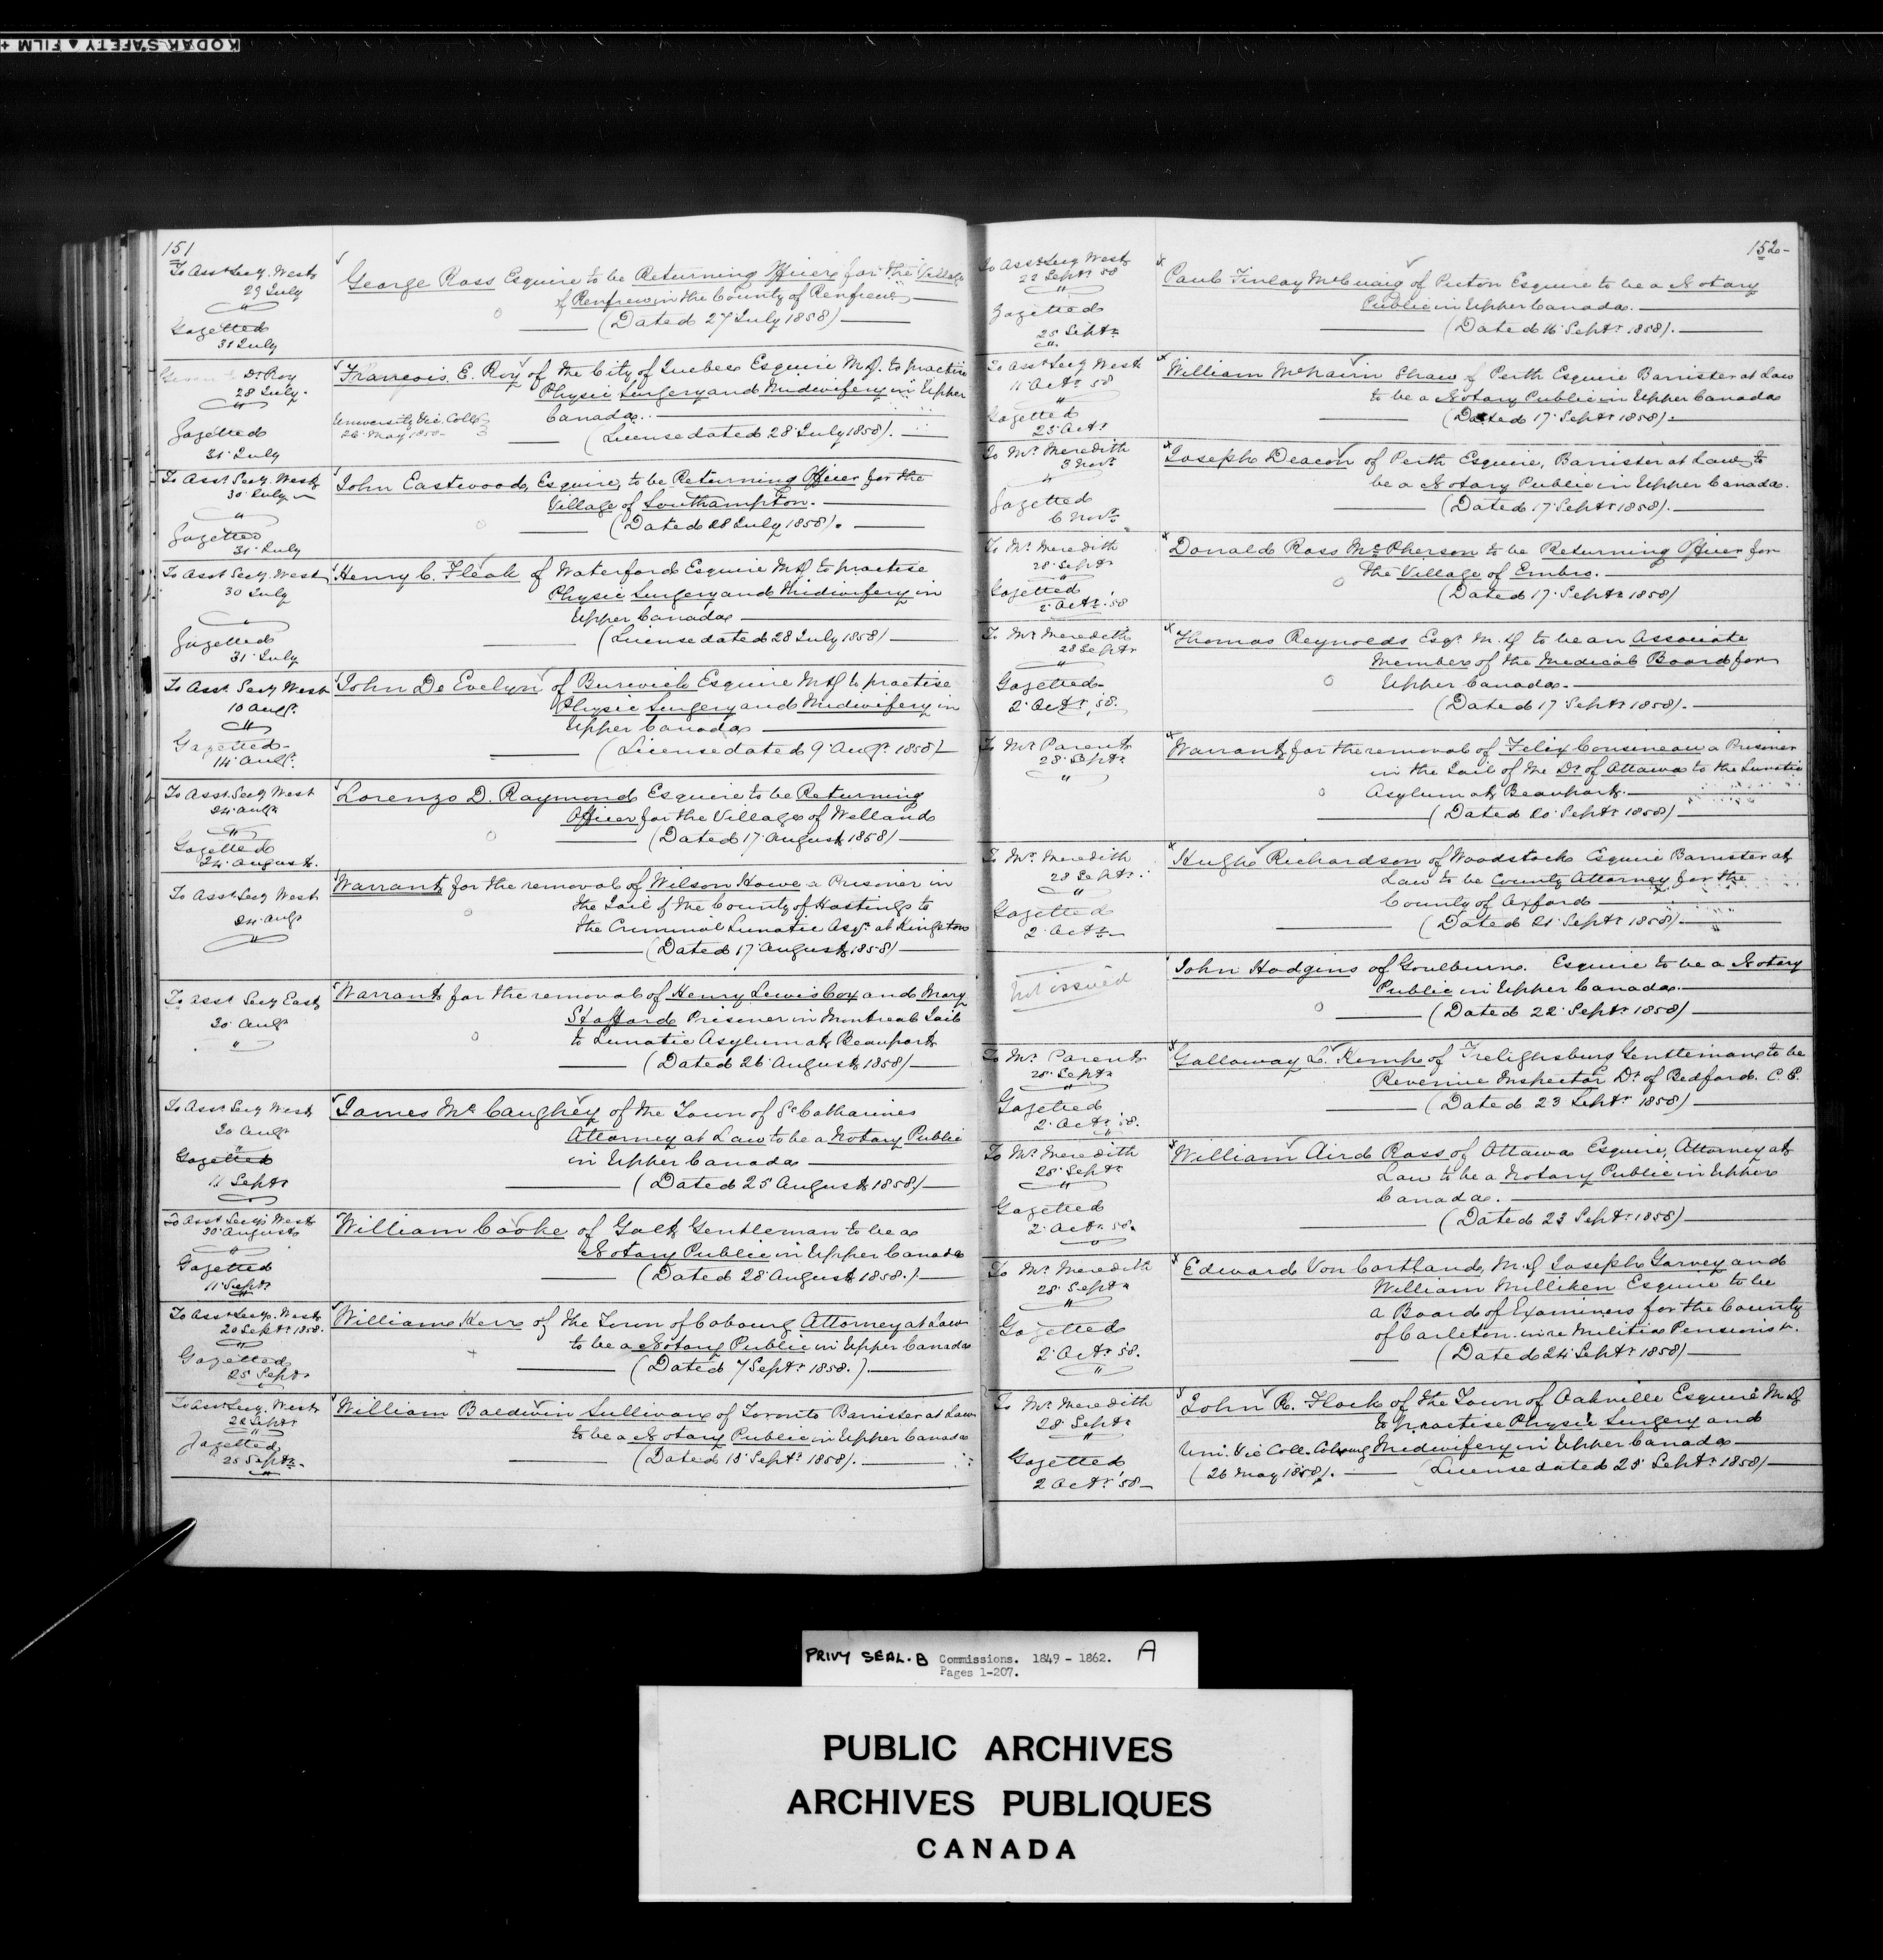 KODAK SAFETY ▲ FILM +
151
To Asst Secy. West
29 July
"
Gazetted
31 July
George Ross Esquire to be Returning Officer for the Village
of Renfrew in the County of Renfrew
(Dated 27 July 1858)
Dr Roy
28 July.
"
Gazetted
31 July
François E. Roy of the City of Quebec Esquire M.D. to practise
Physic Surgery and Midwifery in Upper
University Vic. Coll.
Canada.
26 May 1858
(License dated 28 July 1858).
To Asst Secy. West
30 July
"
Gazetted
31 July
John Eastwood, Esquire, to be Returning Officer for the
Village of Southampton.
(Dated 28 July 1858).
To Asst Secy. West
30 July
Gazetted
31 July
Henry C. Fleak of Waterford Esquire M.D. to practise
Physic Surgery and Midwifery in
Upper Canada
(License dated 28 July 1858)
To Asst. Secy West
10 Augt.
"
Gazetted
14 Augt.
John De Evelyn of Burwick Esquire M.D. to practise
Physic Surgery and Midwifery in
Upper Canada
(License dated 9 Augt. 1858)
To Asst Secy West
24 Augt
"
Gazetted
24 August.
Lorenzo D. Raymond Esquire to be Returning
Officer for the Village of Welland
(Dated 17 August 1858)
To Asst Secy West
24 Augt
"
Warrant for the removal of Wilson Howe a Prisoner in
the Gaol of the County of Hastings to
the Criminal Lunatic Asy. at Kingston
(Dated 17 August 1858)
To Asst Secy East
30 Augt
"
Warrant for the removal of Henry Lewis Cox and Mary
Stafford Prisoner in Montreal Gaol
to Lunatic Asylum at Beauport
(Dated 26 August 1858)
To Asst Secy West
30 Augt
"
Gazetted
11 Septr
James McCaughey of the Town of St Catharines
Attorney at Law to be a Notary Public
in Upper Canada
(Dated 25 August 1858)
To Asst Secy West
30 August
Gazetted
11 Septr
William Cooke of Galt Gentleman to be a
Notary Public in Upper Canada
(Dated 28 August 1858.)
To Asst Secy. West
20 Septr 1858.
"
Gazetted
25 Septr
William Kerr of the Town of Cobourg Attorney at Law
to be a Notary Public in Upper Canada
(Dated 7 Septr 1858.)
To Asst Secy. West
22 Septr
"
Gazetted
25 Septr.
William Baldwin Sullivan of Toronto Barrister at Law
to be a Notary Public in Upper Canada
(Dated 15 Septr. 1858).
152
To Asst Secy West
22 Septr 58
"
Gazetted
25 Septr
"
Paul Finlay McCuaig of Picton Esquire to be a Notary
Public in Upper Canada.
(Dated 16 Septr 1858).
To Asst Secy West
11 Octr 58
"
Gazetted
23 Octr
William McNairn Shaw of Perth Esquire Barrister at Law
to be a Notary Public in Upper Canada
(Dated 17 Septr 1858).
To Mr. Meredith
3 Novr
"
Gazetted
6 Novr.
Joseph Deacon of Perth Esquire, Barrister at Law, to
be a Notary Public in Upper Canada.
(Dated 17 Septr 1858).
To Mr. Meredith
28 Septr
"
Gazetted
2 Octr. 58
Donald Ross McPherson to be Returning Officer for
the Village of Embro.
(Dated 17 Septr 1858)
To Mr Meredith
28 Septr
"
Gazetted
2 Octr, 58.
Thomas Reynolds Esqr. M.D to be an Associate
Member of the Medical Board for
Upper Canada.
(Dated 17 Septr 1858).
To Mr Parent
28 Septr
"
Warrant for the removal of Felix Cousineau a Prisoner
in the Gaol of the Dt. of Ottawa to the Lunatic
Asylum at Beauport.
(Dated 20 Septr 1858)
To Mr. Meredith
28 Septr
"
Gazetted
2 Octr
Hugh Richardson of Woodstock Esquire Barrister at
Law to be County Attorney for the
County of Oxford
(Dated 21 Septr 1858)
Not issued
John Hodgins of Goulburn. Esquire to be a Notary
Public in Upper Canada.
(Dated 22 Septr 1858)
To Mr. Parent
28 Septr
"
Gazetted
2 Octr 58.
Galloway L. Kemp of Frelighsburg Gentleman to be
Revenue Inspector Dt. of Bedford. C.E.
(Dated 23 Septr 1858)
To Mr. Meredith
28 Septr
"
Gazetted
2 Octr 58.
William Aird Ross of Ottawa Esquire, Attorney at
Law to be a Notary Public in Upper
Canada.
(Dated 23 Septr 1858)
To Mr. Meredith
28 Septr
"
Gazetted
2 Octr 58.
"
Edward Von Cortland, M.D Joseph Garvey and
William Milliken Esquire to be
a Board of Examiners for the County
of Carleton in re Militia Pensions &c.
(Dated 24 Septr 1858)
To Mr. Meredith
28 Septr
"
Gazetted
2 Octr '58
John R. Flock of the Town of Oakville Esquire M.D
to practise Physic Surgery and
Uni. Vic Coll. Cobourg Midwifery in Upper Canada
(26 May 1858). (License dated 25 Septr 1858)
PRIVY SEAL. B Commissions. 1849 - 1862. A
Pages 1-207.
PUBLIC ARCHIVES
ARCHIVES PUBLIQUES
CANADA